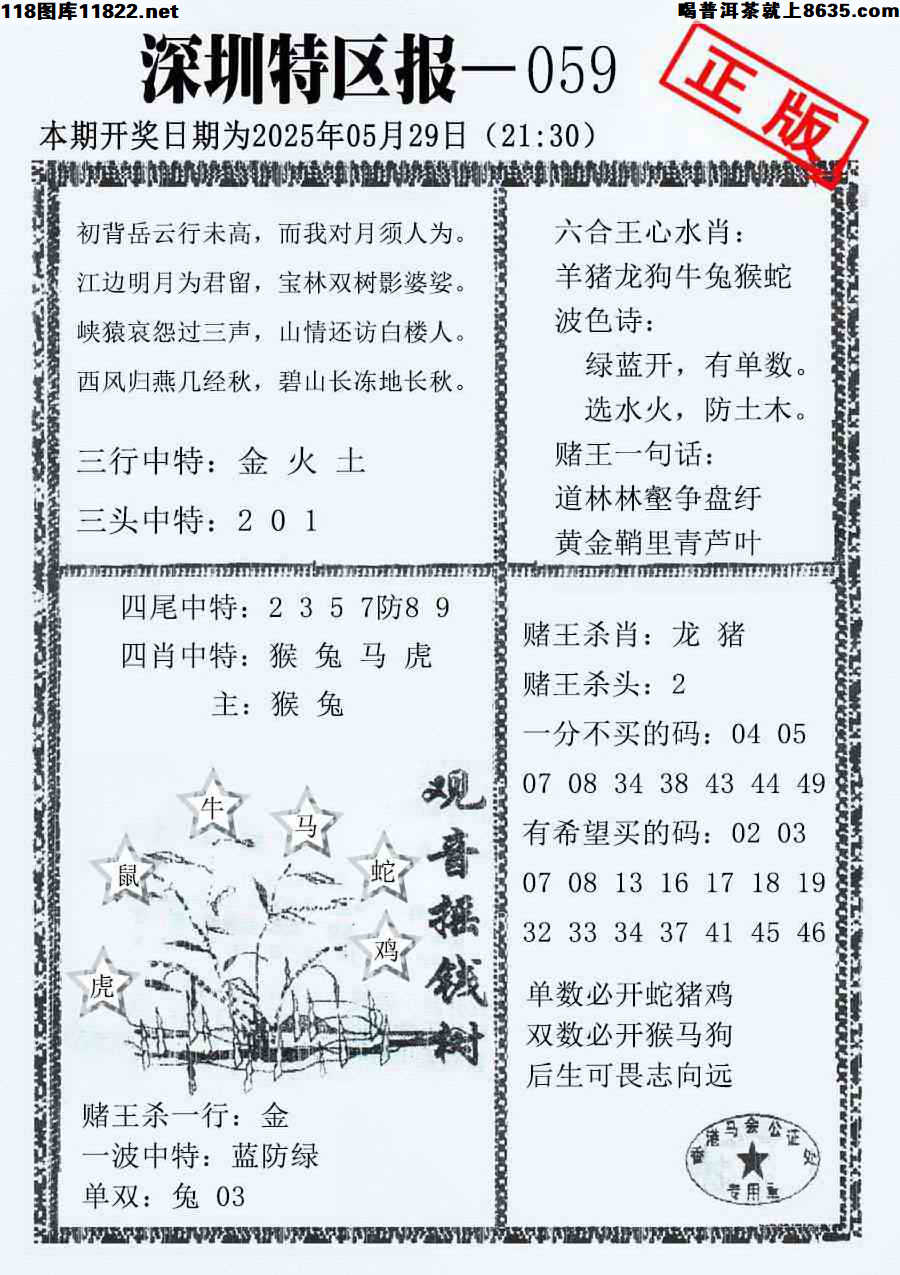 118图库11822.net
喝普洱茶就上8635.com
深圳特区报—059
正版
本期开奖日期为2025年05月29日（21:30）
初背岳云行未高，而我对月须人为。
江边明月为君留，宝林双树影婆娑。
峡猿哀怨过三声，山情还访白楼人。
西风归燕几经秋，碧山长冻地长秋。
三行中特：金 火 土
三头中特：2 0 1
六合王心水肖：
羊猪龙狗牛兔猴蛇
波色诗：
绿蓝开，有单数。
选水火，防土木。
赌王一句话：
道林林壑争盘纡
黄金鞘里青芦叶
四尾中特：2 3 5 7防8 9
四肖中特：猴 兔 马 虎
主：猴 兔
牛
马
鼠
蛇
鸡
虎
观音摇钱树
赌王杀一行：金
一波中特：蓝防绿
单双：兔 03
赌王杀肖：龙 猪
赌王杀头：2
一分不买的码：04 05
07 08 34 38 43 44 49
有希望买的码：02 03
07 08 13 16 17 18 19
32 33 34 37 41 45 46
单数必开蛇猪鸡
双数必开猴马狗
后生可畏志向远
港马会公证
专用